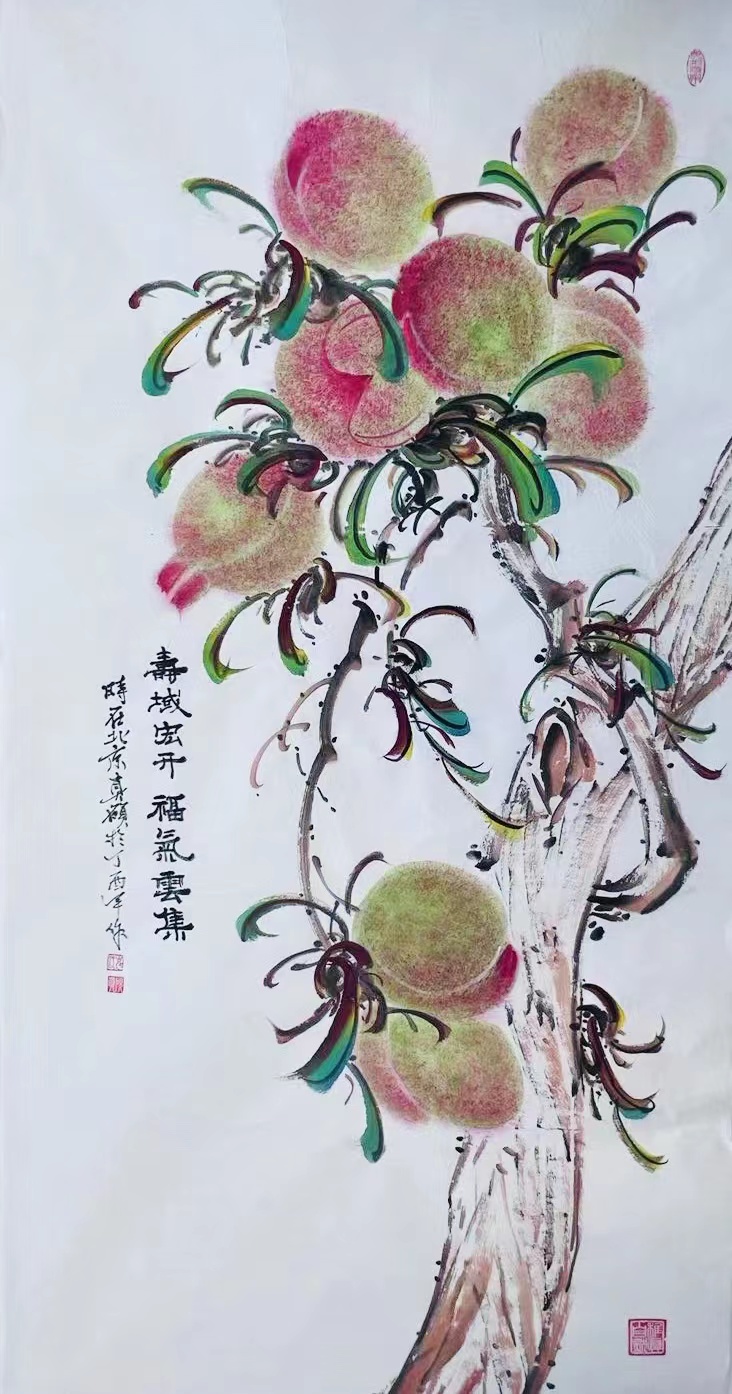 壽域宏开 福氣雲集
時在北京真願於丁酉年作